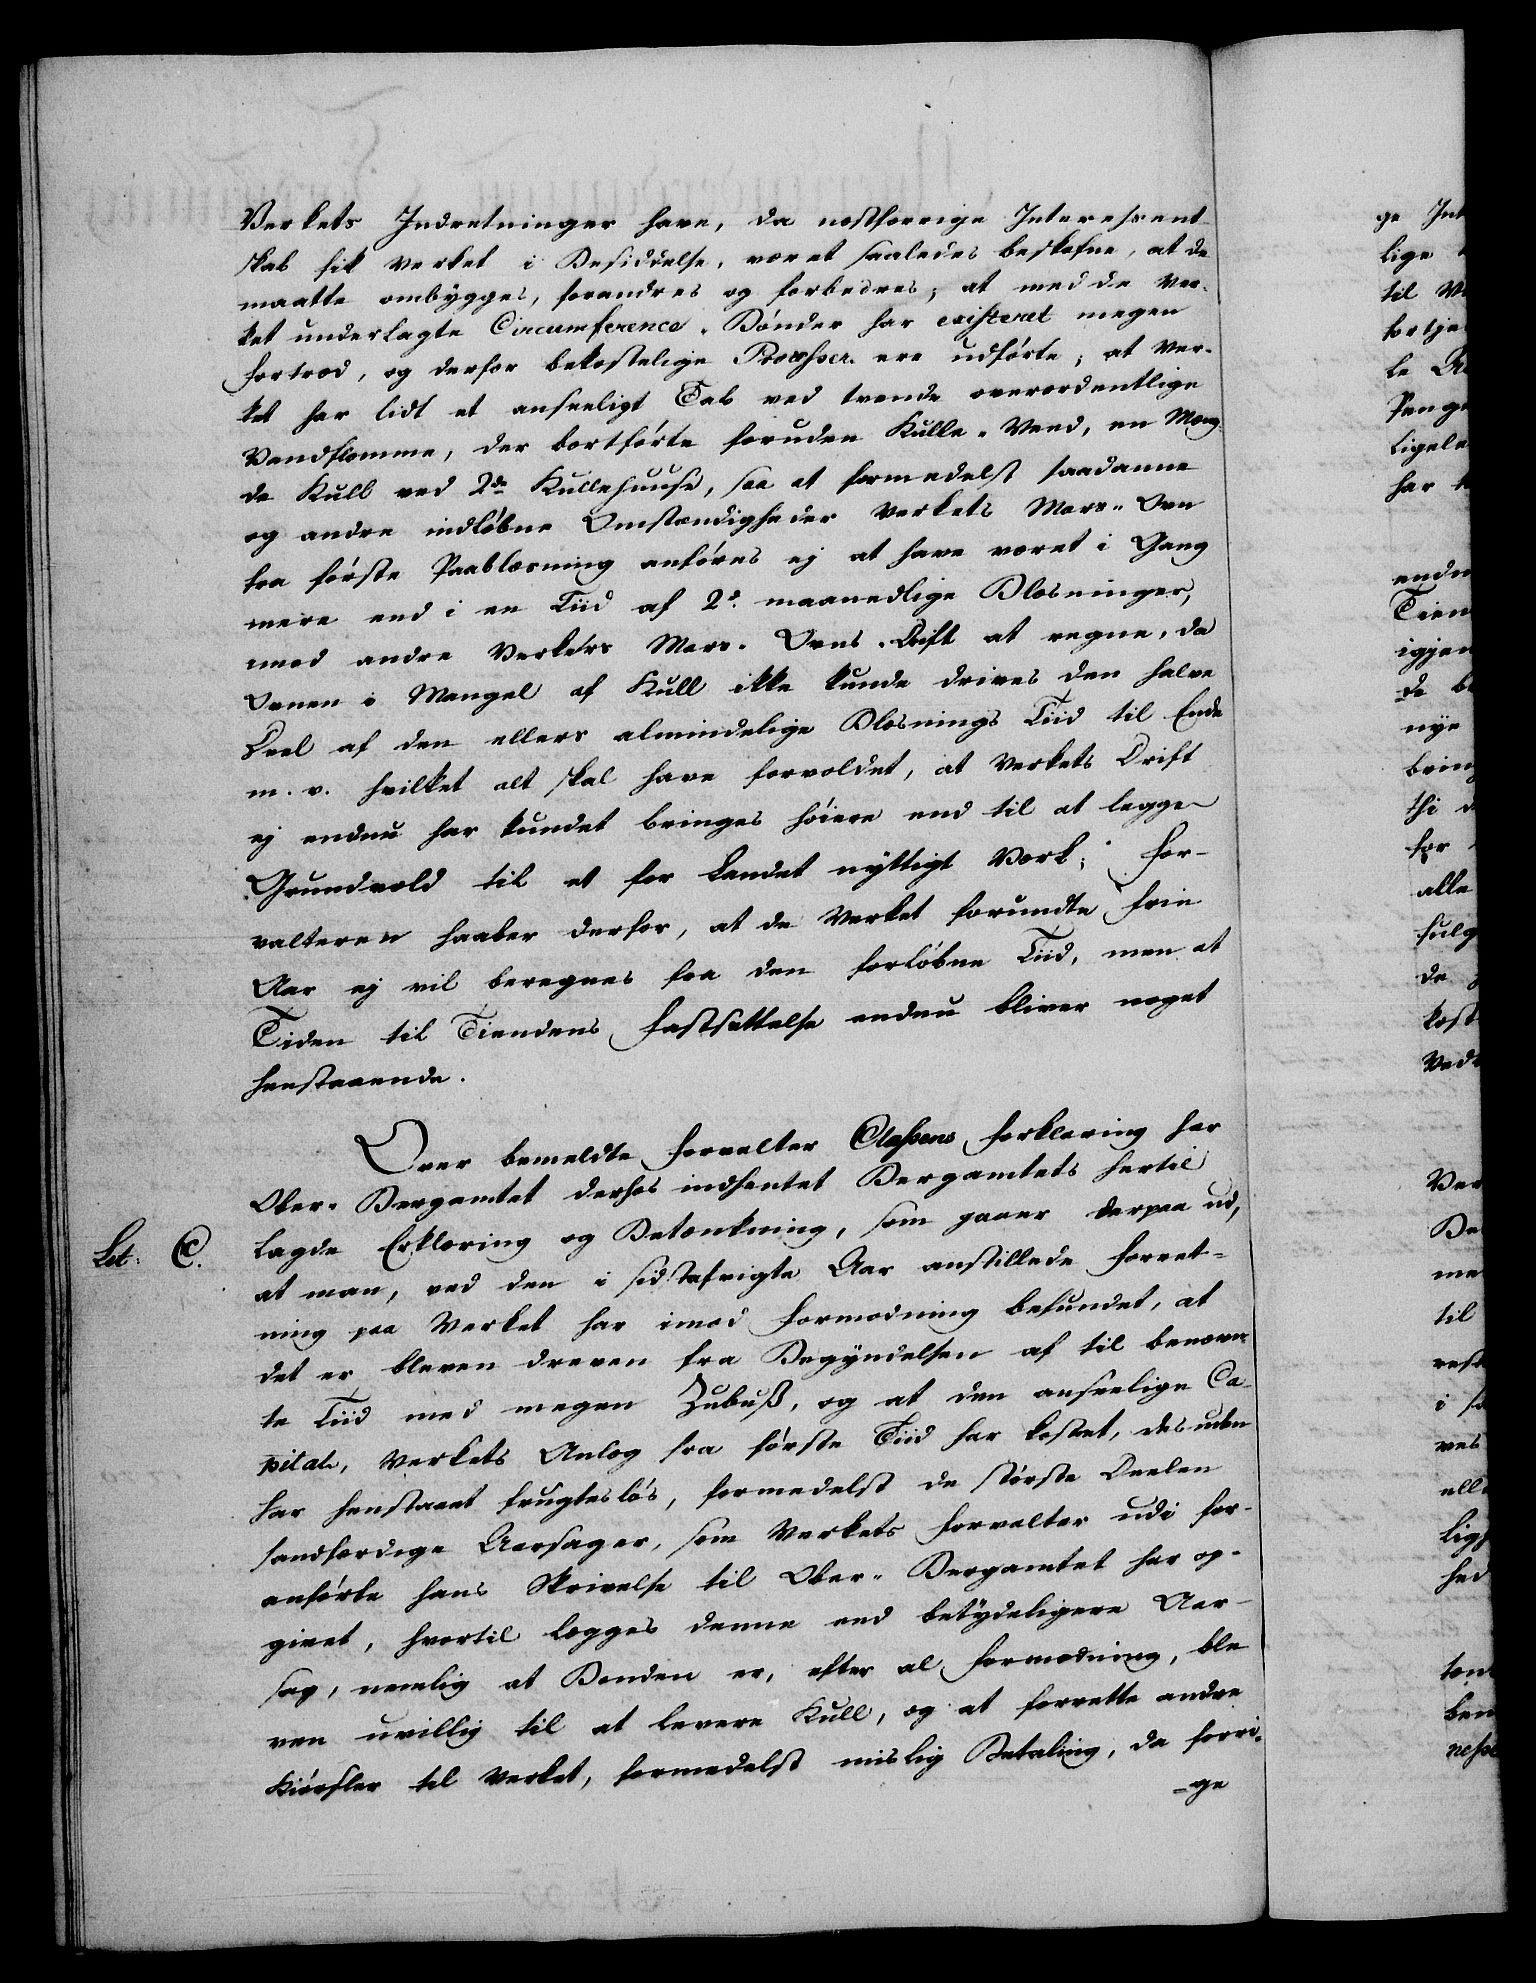 Verkets Indretninger have, da næstforrige Interessent-
skab fik Verket i Besiddelse, været saaledes beskafne, at de
maatte ombygges, forandres og forbedres; at med de Ver-
ket underlagte Circumference-Bønder har existeret megen
Fortræd, og derfor bekostelige Processer ere udførte; at Ver-
ket har lidt et anseeligt Tab ved trende overordentlige
Vandflomme, der bortførte foruden Kulle-Veed, en Mæng-
de Kull ved 2de Kullehuuse, saa at formedelst saadanne
og andre indløbne Omstændigheder Verkets Mars-Ovn
fra første Paablæsning anføres ej at have været i Gang
mere end i en Tiid af 2de maanedlige Blæsninger,
mod andre Verkers Mars-Ovns-Drift at regne, da
Ovnen i Mangel af Kull ikke kunde drives den halve
Deel af den ellers almindelige Blæsnings Tiid til Ende
m. v. hvilket alt skal have forvoldet, at Verkets Drift
ej endnu har kundet bringes høiere end til at legge
Grundvold til et for Landet nyttigt Værk; For-
valteren haaber derfor, at de Verket forundte Frie
Aar ej vil beregnes fra den forløbne Tiid, men at
Tiden til Tiendens Fastsættelse endnu bliver noget
henstaaende.
Over bemeldte Forvalter Classens Forklaring har
Ober-Bergamtet derhos indhentet Bergamtets hertil
Let: C. lagde Erklæring og Betænkning, som gaaer derpaa ud,
at man, ved den i sidstafvigte Aar anstillede Forret-
ning paa Verket har imod Formodning befundet, at
det er bleven dreven fra Begyndelsen af til benævn-
te Tiid med megen Zubuß, og at den anseelige Ca-
pital, Verkets Anlæg fra første Tiid har kostet, desuden
har henstaaet frugtesløs, formedelst de største Deelen
sandfærdige Aarsager, som Verkets Forvalter udi for-
anførte hans Skrivelse til Ober-Bergamtet har op-
givet, hvortil lægges denne end betydeligere Aar-
sag, nemlig at Bonden er, efter al Formodning, ble-
ven uvillig til at levere Kull, og at forrette andre
Kiørsler til Verket, formedelst mislig Betaling, da forri-
-ge